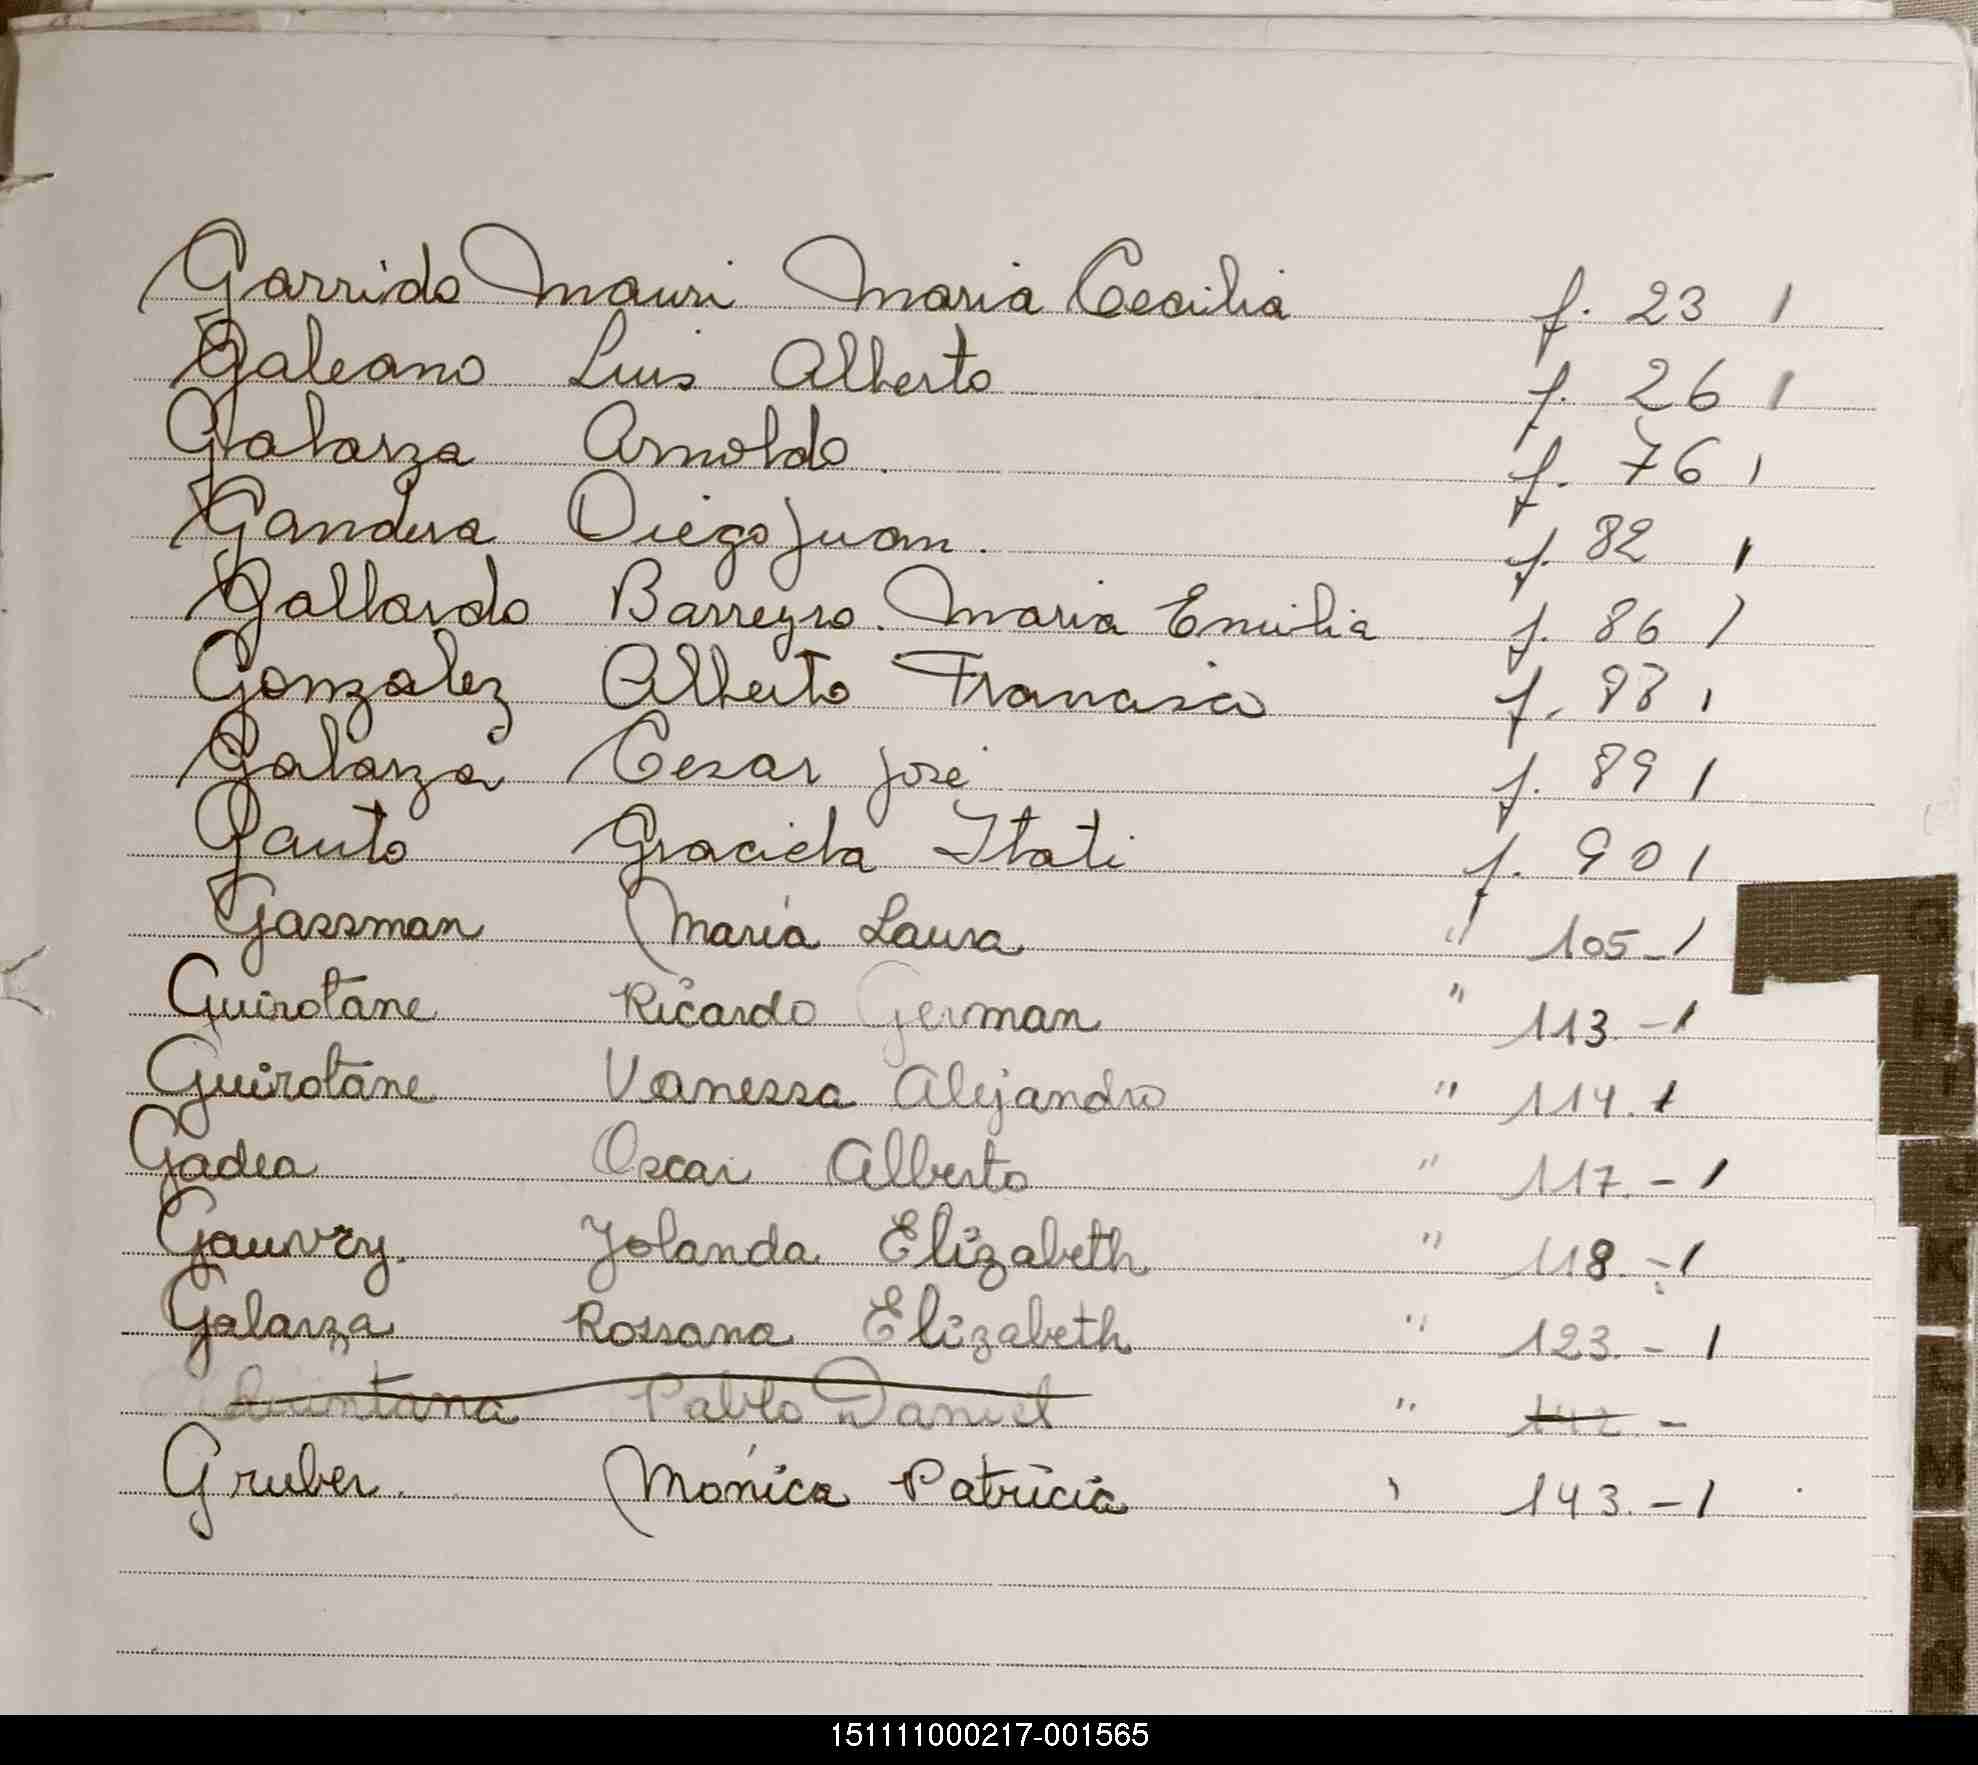 Garrido Mauri Maria Cecilia f. 23 1
Galeano Luis Alberto f. 26 1
Galarza Arnoldo. f. 76 1
Gandera Diego Juan. f. 82 1
Gallardo Barreyro. Maria Emilia f. 86 1
Gonzalez Alberto Francisco f. 88 1
Galarza Cesar José f. 89 1
Gauto Graciela Itati f. 90 1
Gassman María Laura " 105-1
Guirotane Ricardo German " 113.-1
Guirotane Vanessa Alejandro " 114.1
Gadea Oscar Alberto " 117.-1
Gauvry. Yolanda Elizabeth " 118.-1
Galarza Rossana Elizabeth " 123.-1
Quintana Pablo Daniel " 142.-
Gruber. Mónica Patricia " 143.-1
151111000217-001565